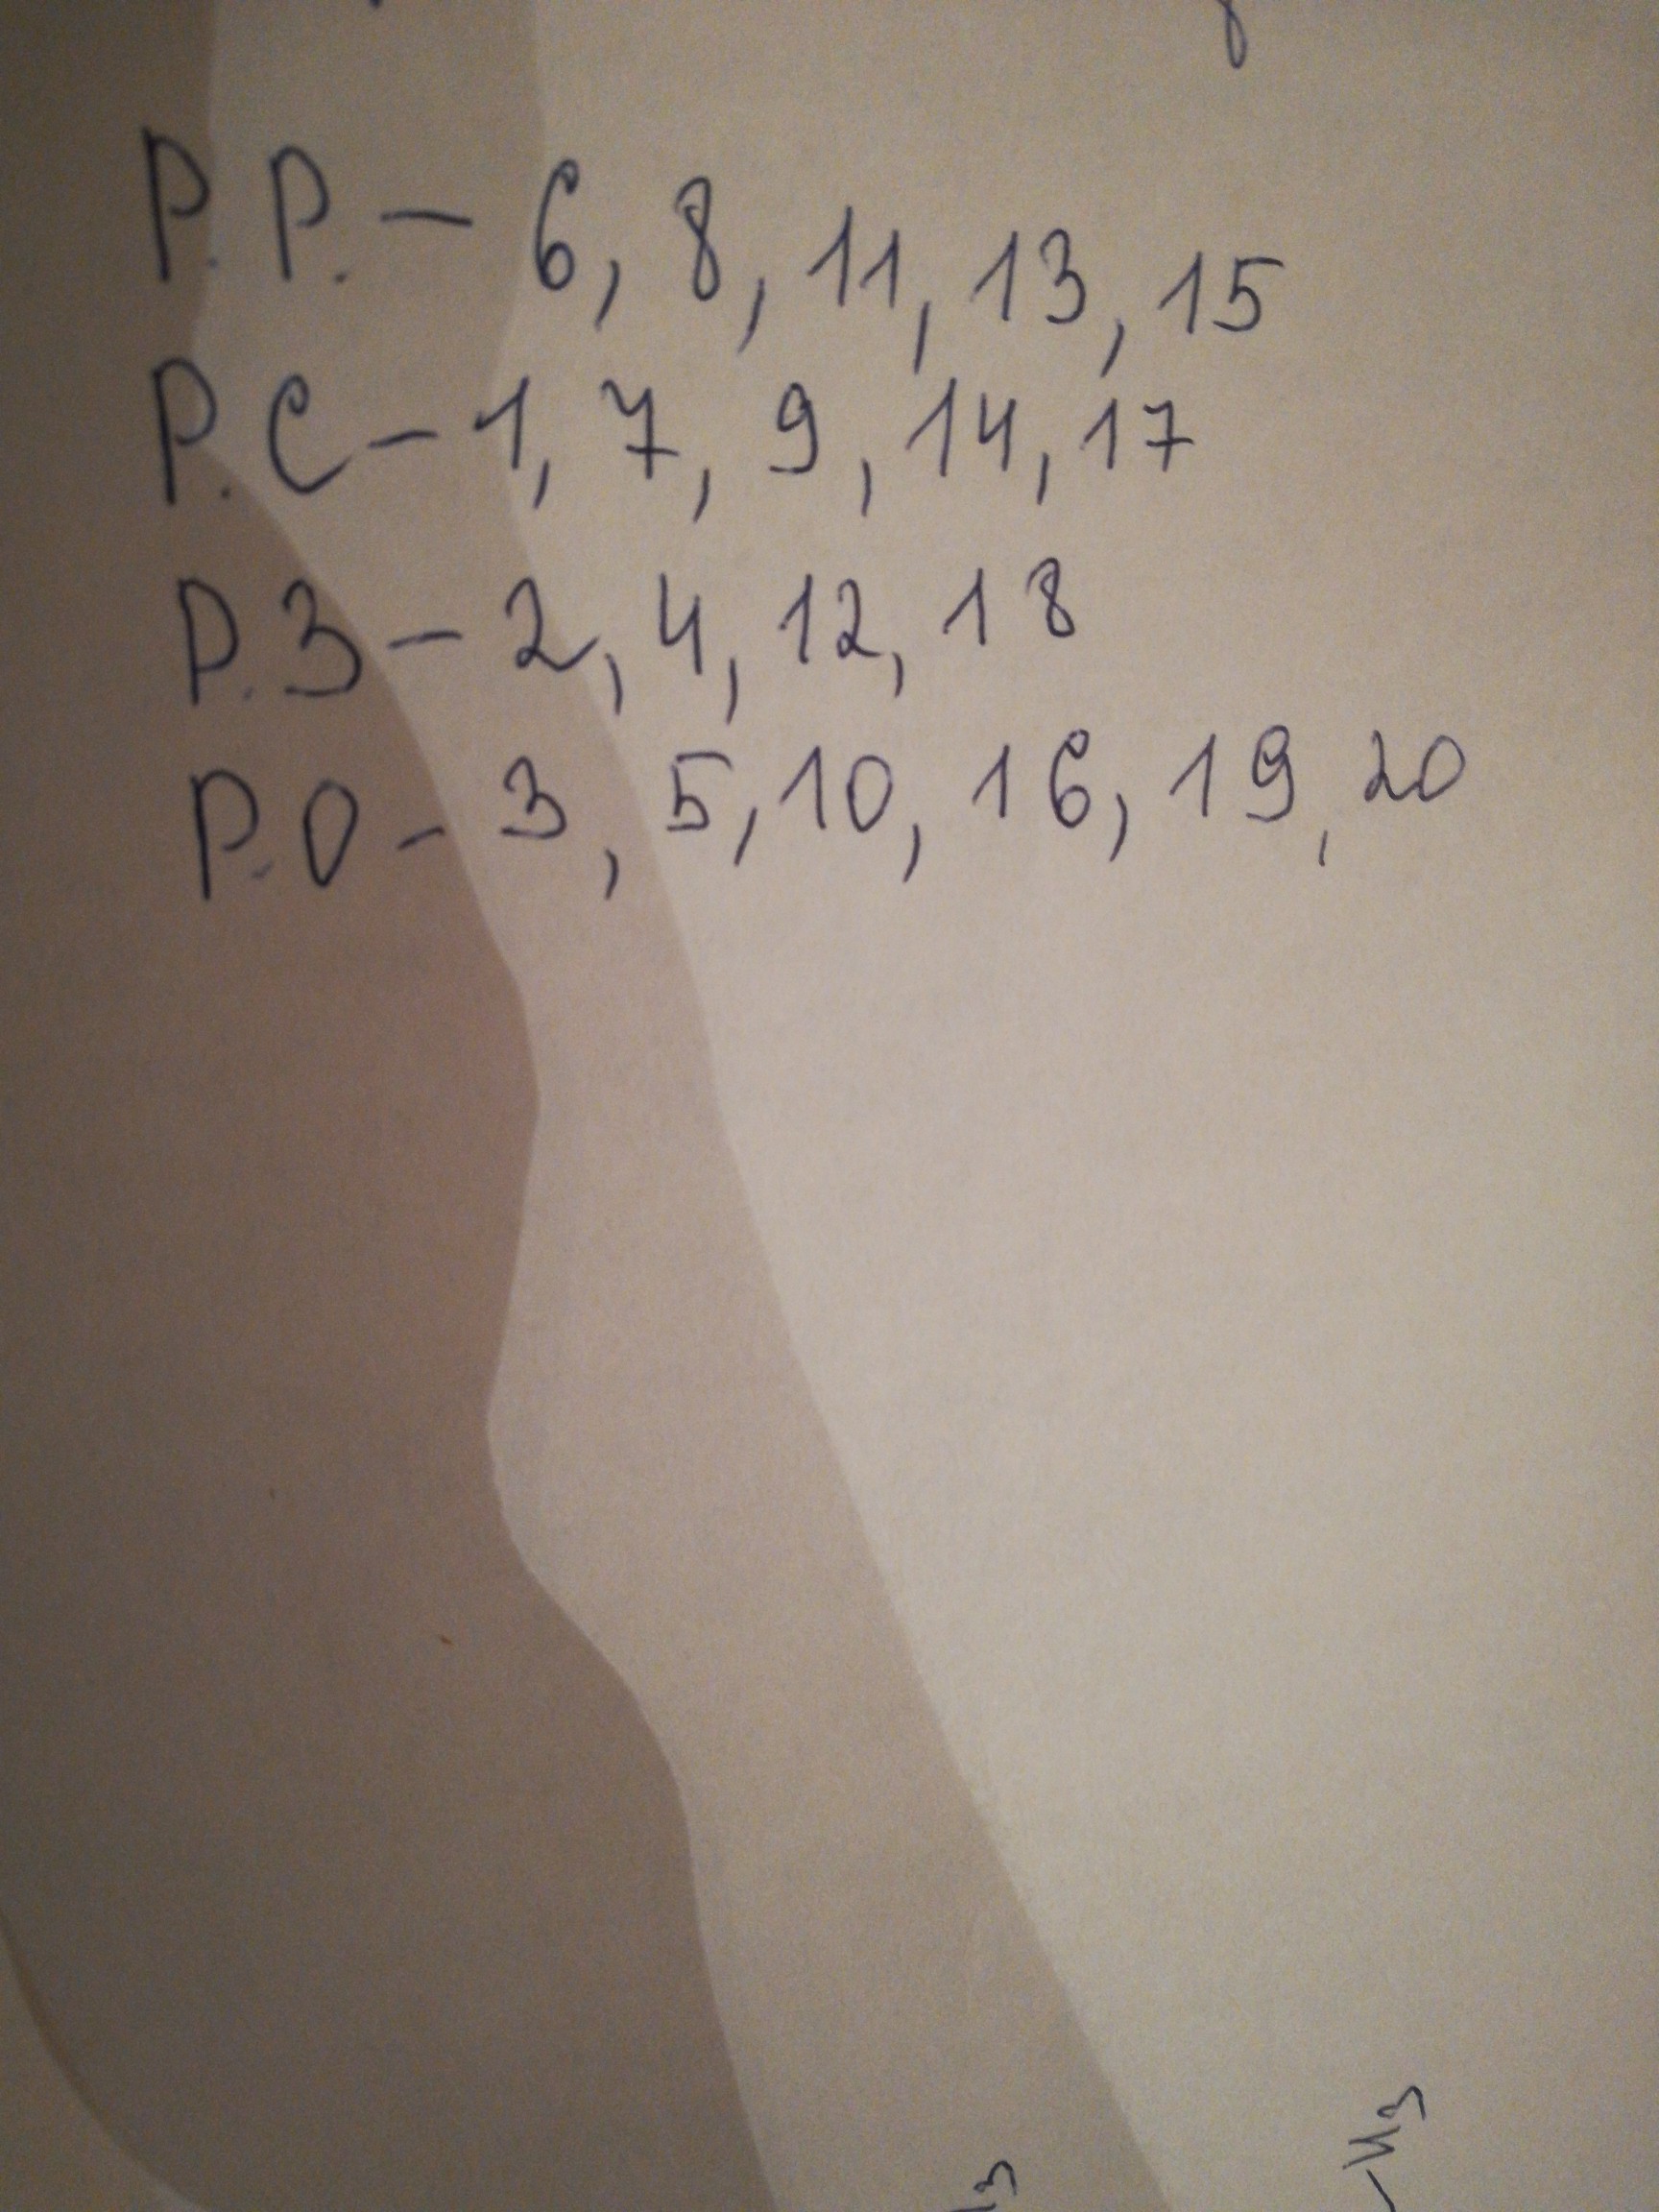 Р.Р. - 6, 8, 11, 13, 15
Р.С - 1, 7, 9, 14, 17
Р.З - 2, 4, 12, 18
Р.О - 3, 5, 10, 16, 19, 20